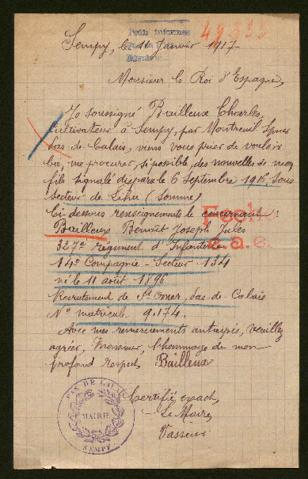 49732
Sempy, le 16 Janvier 1917.
Monsieur le Roi d'Espagne,
Je soussigné, Bailleux Charles,
cultivateur à Sempy, par Montreuil s/mer
Pas de Calais, viens vous prier de vouloir
bien me procurer, si possible, des nouvelles de mon
fils signalé disparu le 6 Septembre 1916, sous
secteur de (Somme)
Ci-dessous renseignements le concernant :
Bailleux Joseph Jules
327e Régiment d'Infanterie
14e Compagnie - Secteur 134
né le 11 août 1896
Recrutement de St Omer, Pas-de-Calais
No matricule 9.174.
Avec mes remerciements anticipés, veuillez
agréer, Monsieur, l'hommage de mon
profond respect. Bailleux
Certifié exact,
Le Maire,
Vasseur
PAS DE CALAIS
MAIRIE
SEMPY